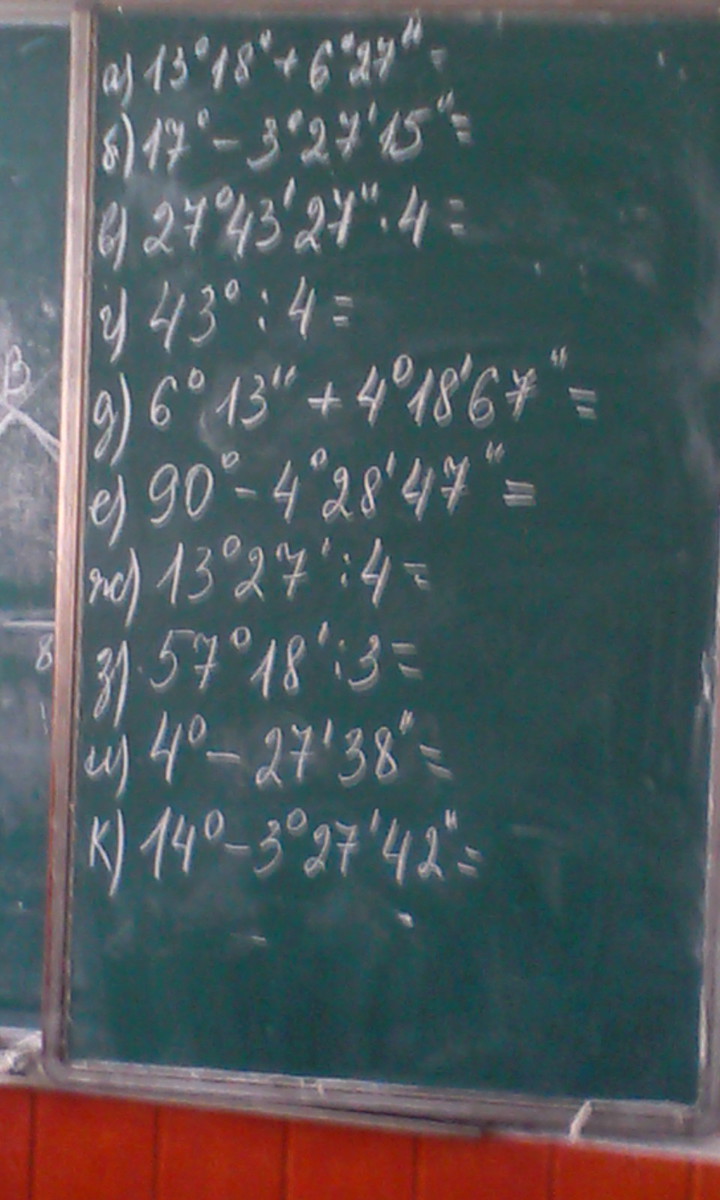 а) 13°18" + 6°27" =
б) 17° - 3°27'15" =
в) 27°43'27" · 4 =
г) 43° : 4 =
д) 6°13" + 4°18'67" =
е) 90° - 4°28'47" =
ж) 13°27' : 4 =
з) 57°18' : 3 =
и) 4° - 27'38" =
к) 14° - 3°27'42" =
B
8